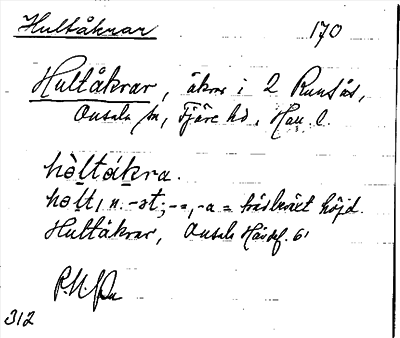 Hultåkrar 170
Hultåkrar, åkrar i 2 Runsås,
Onsala sn, Fjäre hd, Hall. l.
hòltåkra.
holt, n. -ət; -=, -a = trädbeväxt höjd.
Hultåkrar, Onsala Häradsf. 61
312